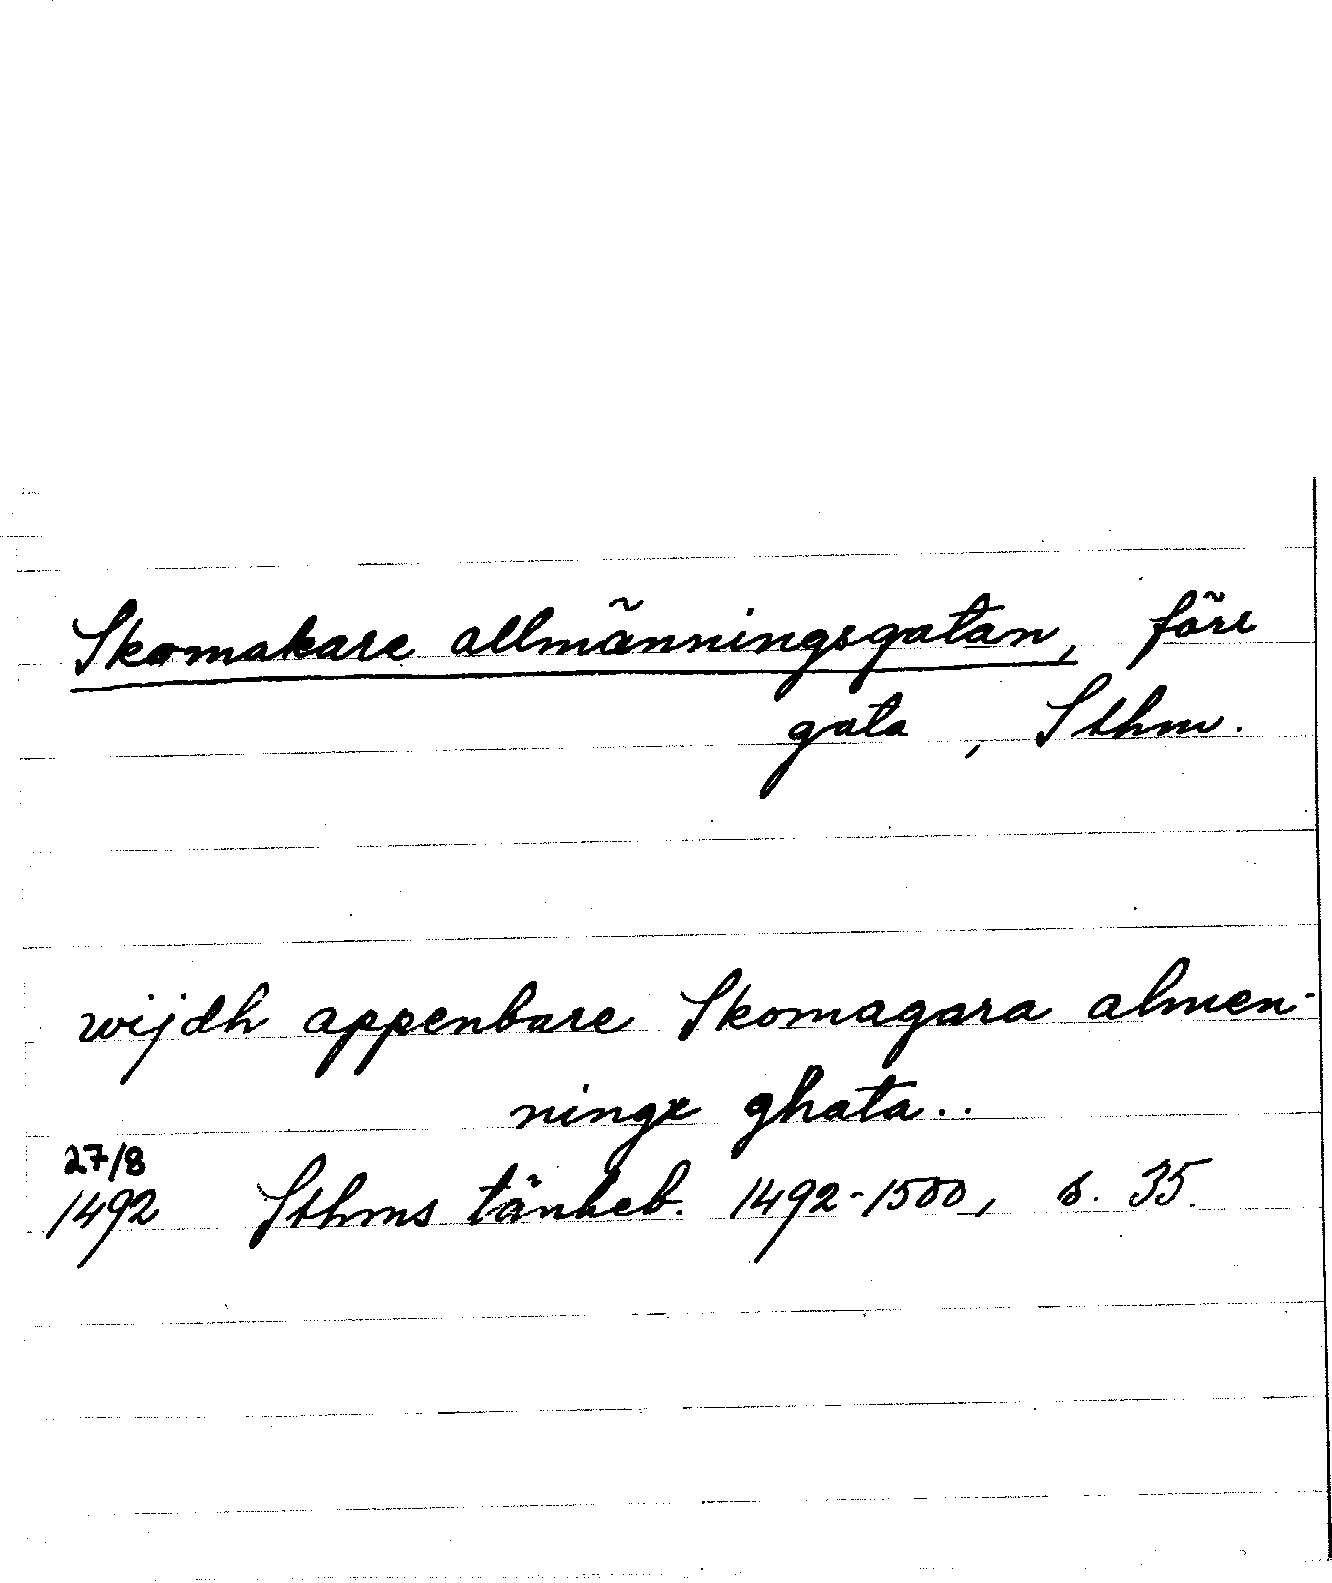 Skomakare allmänningsgatan, förr
gata, Sthm.
wijdh appenbare Skomagara almen-
ninge ghata..
27/8
1492 Sthms tänkeb. 1492-1500, s. 35.